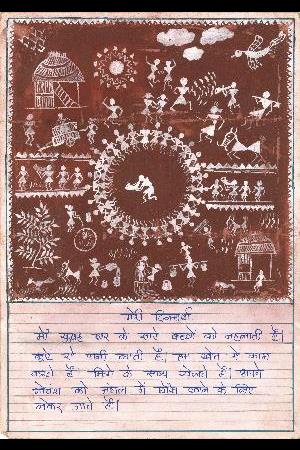 मेरी दिनचर्या
मैं सुबह घर के सारे काम को नहलाती हैं।
कुएं से पानी लाती हैं, हम खेत में काम
करते हैं मित्रों के साथ खेलते हैं। अपने
को जंगल में घास खाने के लिए
लेकर जाते हैं।